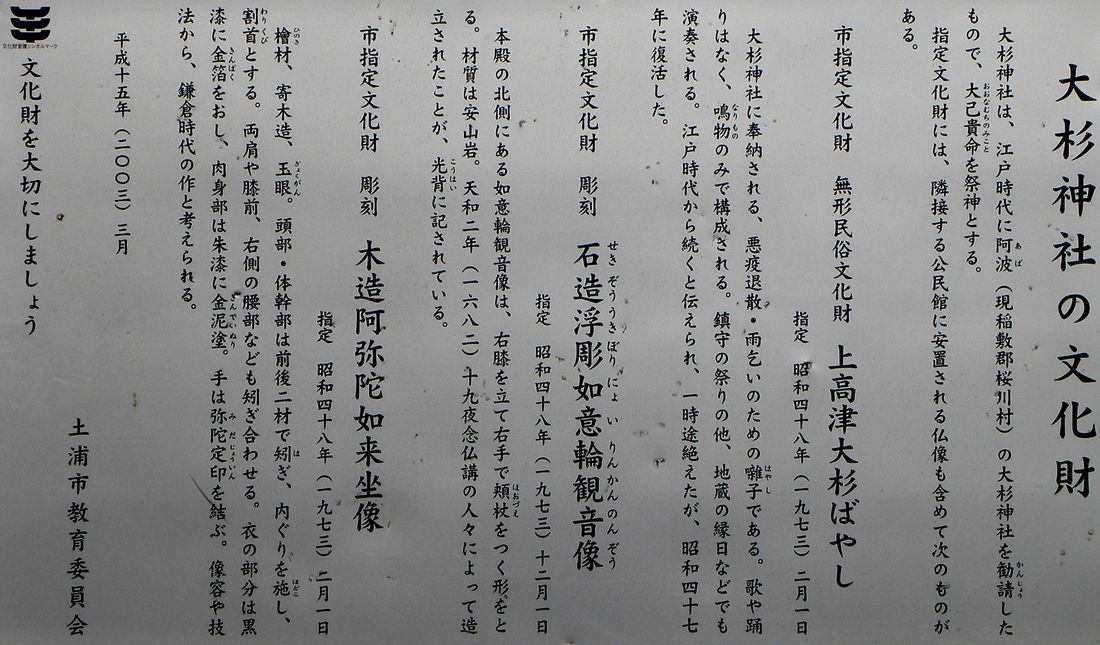 大杉神社の文化財
大杉神社は、江戸時代に阿波（現稲敷郡桜川村）の大杉神社を勧請した
もので、大己貴命を祭神とする。
指定文化財には、隣接する公民館に安置される仏像も含めて次のものが
ある。
市指定文化財　無形民俗文化財　上高津大杉ばやし
指定　昭和四十八年（一九七三）二月一日
大杉神社に奉納される、悪疫退散・雨乞いのための囃子である。歌や踊
りはなく、鳴物のみで構成される。鎮守の祭りの他、地蔵の縁日などでも
演奏される。江戸時代から続くと伝えられ、一時途絶えたが、昭和四十七
年に復活した。
市指定文化財　彫刻　石造浮彫如意輪観音像
指定　昭和四十八年（一九七三）十二月一日
本殿の北側にある如意輪観音像は、右膝を立て右手で頬杖をつく形をと
る。材質は安山岩。天和二年（一六八二）十九夜念仏講の人々によって造
立されたことが、光背に記されている。
市指定文化財　彫刻　木造阿弥陀如来坐像
指定　昭和四十八年（一九七三）二月一日
檜材、寄木造、玉眼。頭部・体幹部は前後二材で矧ぎ、内ぐりを施し、
割首とする。両肩や膝前、右側の腰部なども矧ぎ合わせる。衣の部分は黒
漆に金箔をおし、肉身部は朱漆に金泥塗。手は弥陀定印を結ぶ。像容や技
法から、鎌倉時代の作と考えられる。
平成十五年（二〇〇三）三月
土浦市教育委員会
文化財愛護シンボルマーク
文化財を大切にしましょう